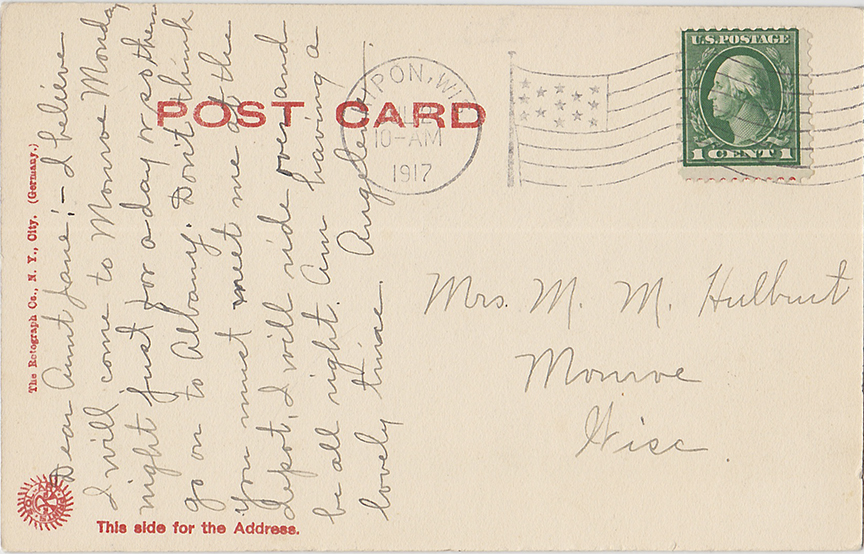 POST CARD
RIPON, WI
10-AM
1917
U.S. POSTAGE
1 CENT 1
The Rotograph Co., N. Y., City. (Germany.)
Dear Aunt Jane:- I believe
I will come to Monroe Monday
night just for a day or so then
go on to Albany. Don't think
you must meet me at the
depot, I will ride over and
be all right. Am having a
lovely time. Angeleen.
Mrs. M. M. Hulburt
Monroe
Wisc.
This side for the Address.